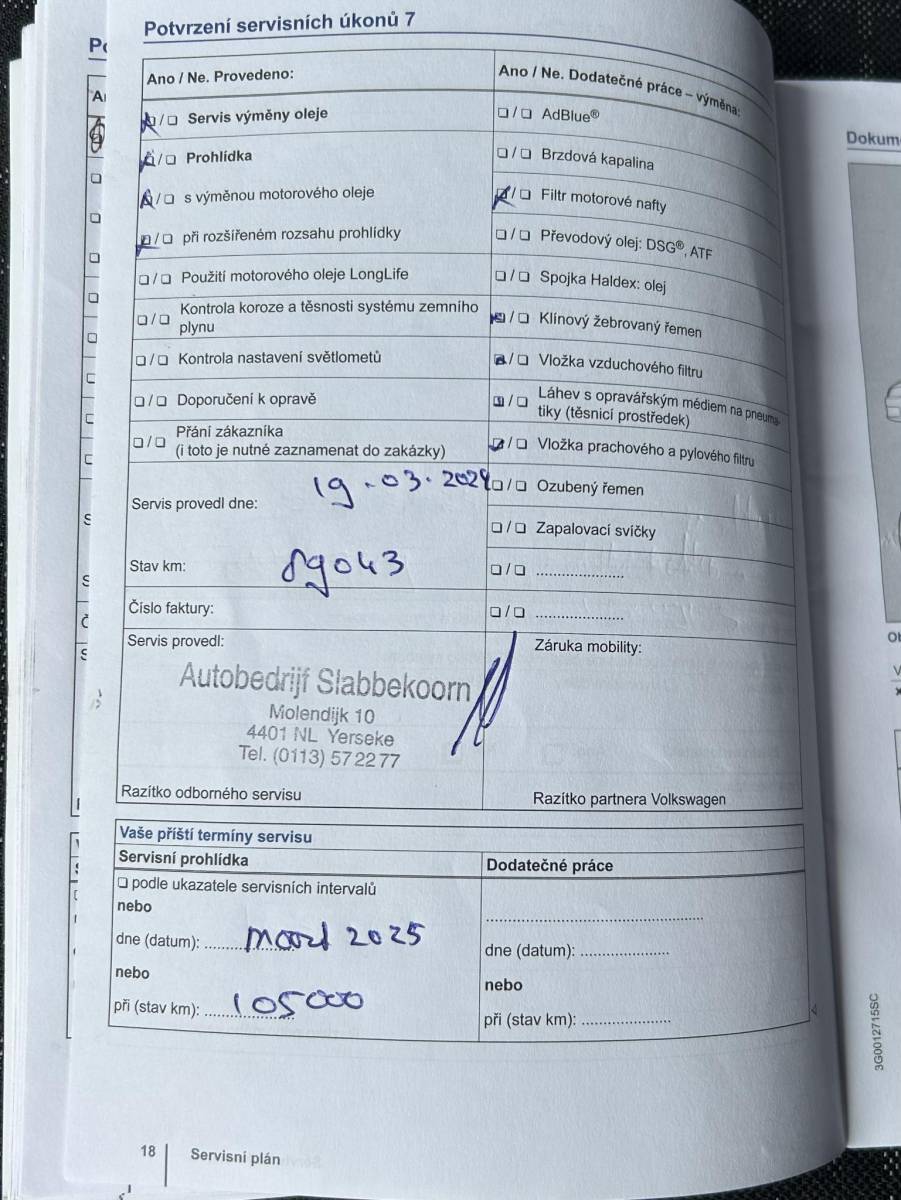 Potvrzení servisních úkonů 7
Ano / Ne. Provedeno:
❏ / ❏ Servis výměny oleje
❏ / ❏ Prohlídka
❏ / ❏ s výměnou motorového oleje
❏ / ❏ při rozšířeném rozsahu prohlídky
❏ / ❏ Použití motorového oleje LongLife
❏ / ❏ Kontrola koroze a těsnosti systému zemního
plynu
❏ / ❏ Kontrola nastavení světlometů
❏ / ❏ Doporučení k opravě
❏ / ❏ Přání zákazníka
(i toto je nutné zaznamenat do zakázky)
Servis provedl dne: 19.03.2024
Stav km: 89043
Číslo faktury:
Servis provedl:
Autobedrijf Slabbekoorn
Molendijk 10
4401 NL Yerseke
Tel. (0113) 57 22 77
Razítko odborného servisu
Ano / Ne. Dodatečné práce – výměna:
❏ / ❏ AdBlue®
❏ / ❏ Brzdová kapalina
❏ / ❏ Filtr motorové nafty
❏ / ❏ Převodový olej: DSG®, ATF
❏ / ❏ Spojka Haldex: olej
❏ / ❏ Klínový žebrovaný řemen
❏ / ❏ Vložka vzduchového filtru
❏ / ❏ Láhev s opravářským médiem na pneuma-
tiky (těsnicí prostředek)
❏ / ❏ Vložka prachového a pylového filtru
❏ / ❏ Ozubený řemen
❏ / ❏ Zapalovací svíčky
❏ / ❏ .....................
❏ / ❏ .....................
Záruka mobility:
Razítko partnera Volkswagen
Vaše příští termíny servisu
Servisní prohlídka
❏ podle ukazatele servisních intervalů
nebo
dne (datum): 2025
nebo
při (stav km): 105000
Dodatečné práce
.....................
dne (datum): .....................
nebo
při (stav km): .....................
18 Servisní plán
Dokum
3G0012715SC